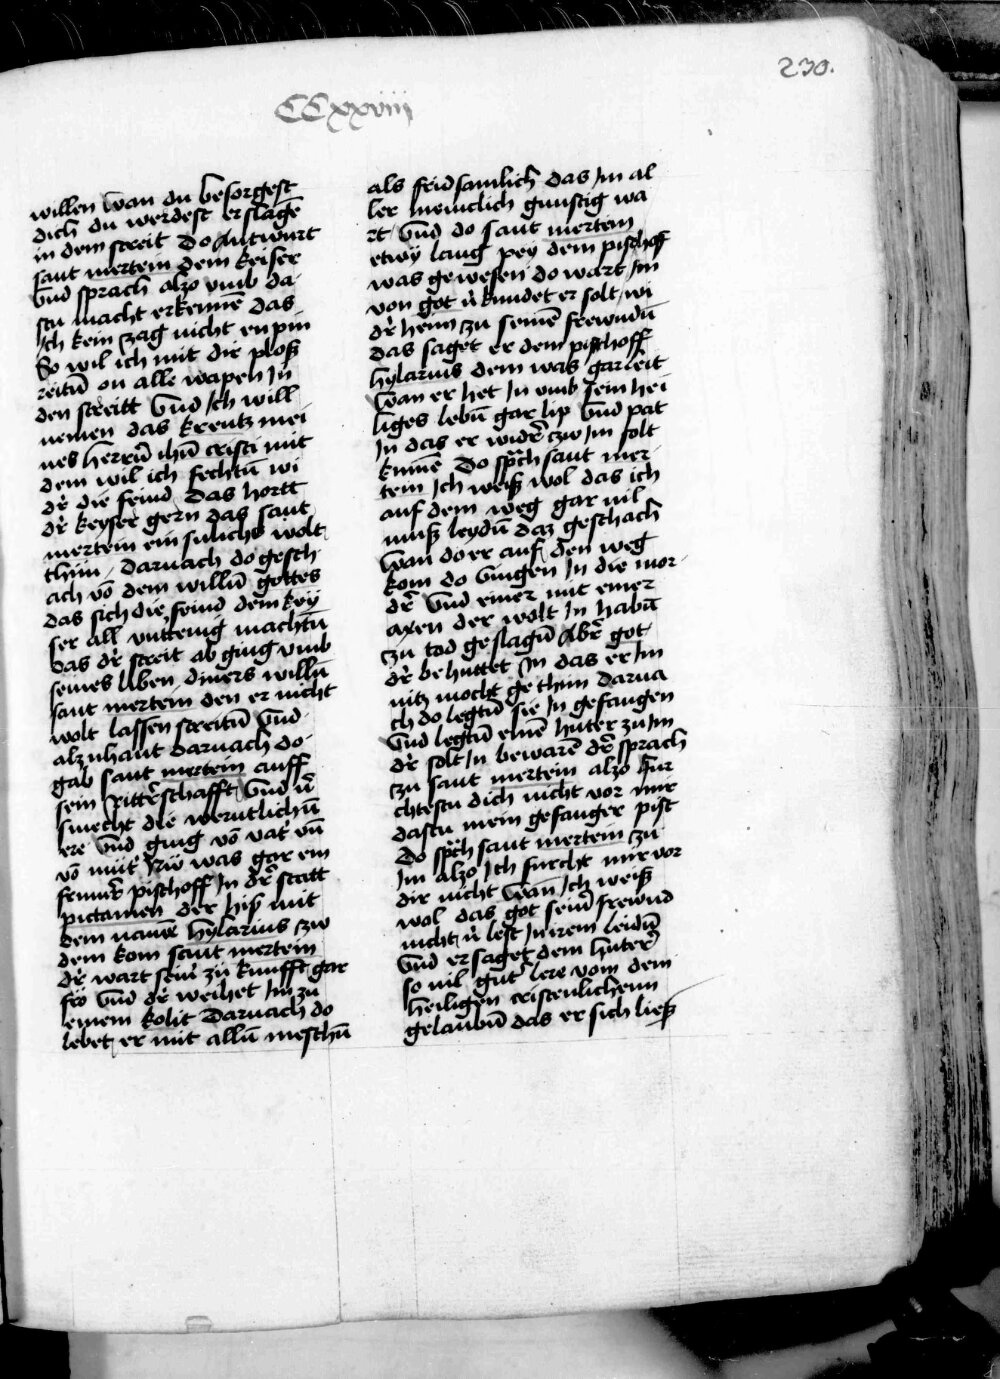 230.
CCxxviij
willen wan du besorgest
dich du werdest erslagē
in dem streit Do Antwurt
sant mertein dem keiser
vnd sprach alzo vmb da
stu macht erkennē das
Ich kein zag nicht en pin
So wil ich mit dir ploß
reitñ on alle wapen Jn
den streitt vnd Ich will
nemen das kreutz mei
nes herrñ ihū cristi mit
dem wil ich fechtñ wi
dr̄ die feind Das hortt
dr̄ keyser gern das sant
mertein ein sulichs wolt
thun Darnach do gesch
ach vō dem willñ gottes
das sich die feind dem key
ser all vnttenig machtñ
das dr̄ streit ab ging vmb
seines liben diners willñ
sant mertein den er nicht
wolt lassen streitñ vnd
alzuhant darnach do
gab sant mertein auff
sein Ritt̄rschafft vnd v̄
smecht die werntlichñ
ere vnd ging vō vat̄ vn̄
vō mūt̄ Nw was gar ein
frum̄r pischoff Jn dr̄ statt
pictamen der hiß mit
dem namē hylarius czw
dem kom sant mertein
dr̄ wart sein̄ zu kunfft gar
fro vnd dr̄ weihet Jm zu
einem kolit Darnach do
lebet er mit allñ meschñ
als fridsamlich das Jm al
ler menclich gunstig wa
rt vnd do sant mertem
etwy lang pey dem pischoff
was gewesen do wart Jm
von got v̄kundet er solt wi
dr̄ heim zu seinē frewndñ
das saget er dem pischoff
hylarius dem was gar leit
wan er het Jn vmb sein hei
liges lebñ gar lip vnd pat
Jn das er widr̄ czw Jm solt
kumē Do spr̄ch sant mer
tein Ich weiß wol das ich
auf dem weg gar vil
muß leydñ daz geschach
wan do er auf den weg
kom do vingen Jn die mor
dr̄ vnd einer mit einer
axen der wolt Jn habñ
zu tod geslagñ Abr̄ got
dr̄ behuttet Jn das er Jm
nitz mocht ge thun darna
ch do legtñ sie Jn gefangen
vnd legtñ einē huter zu Jm
dr̄ solt Jn bewarē dr̄ sprach
zu sant mertein alzo Fur
chtestu dich nicht vor mir
dastu mein gefanger pist
Do spr̄ch sant mertein zu
Jm alzo Ich furcht mir vor
dir nicht wan Ich weiß
wol das got sein̄ frewnd
nicht v̄lest Jn irem leidñ
vnd er saget dem huter̄
so vil gut̄ lere vom dem
heiligen cristenlichenn
gelaubñ das er sich ließ